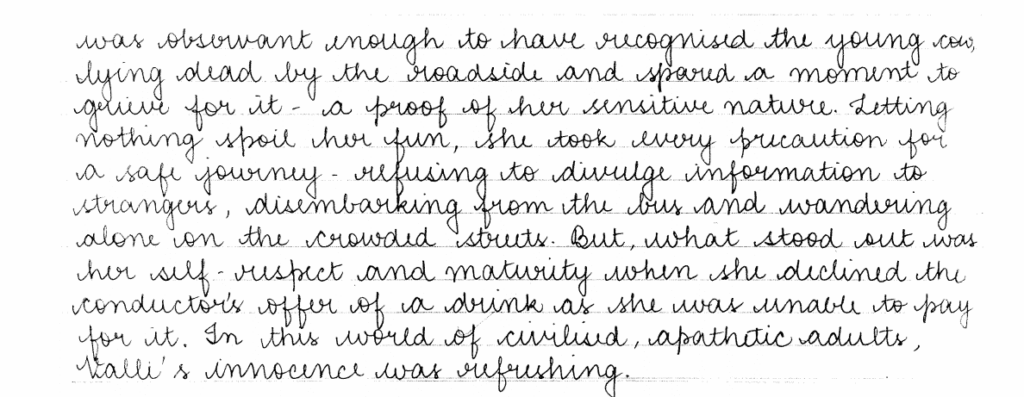 was observant enough to have recognised the young cow,
lying dead by the roadside and spared a moment to
grieve for it - a proof of her sensitive nature. Letting
nothing spoil her fun, she took every precaution for
a safe journey - refusing to divulge information to
strangers, disembarking from the bus and wandering
alone on the crowded streets. But, what stood out was
her self-respect and maturity when she declined the
conductor's offer of a drink as she was unable to pay
for it. In this world of civilised, apathetic adults,
Valli's innocence was refreshing.